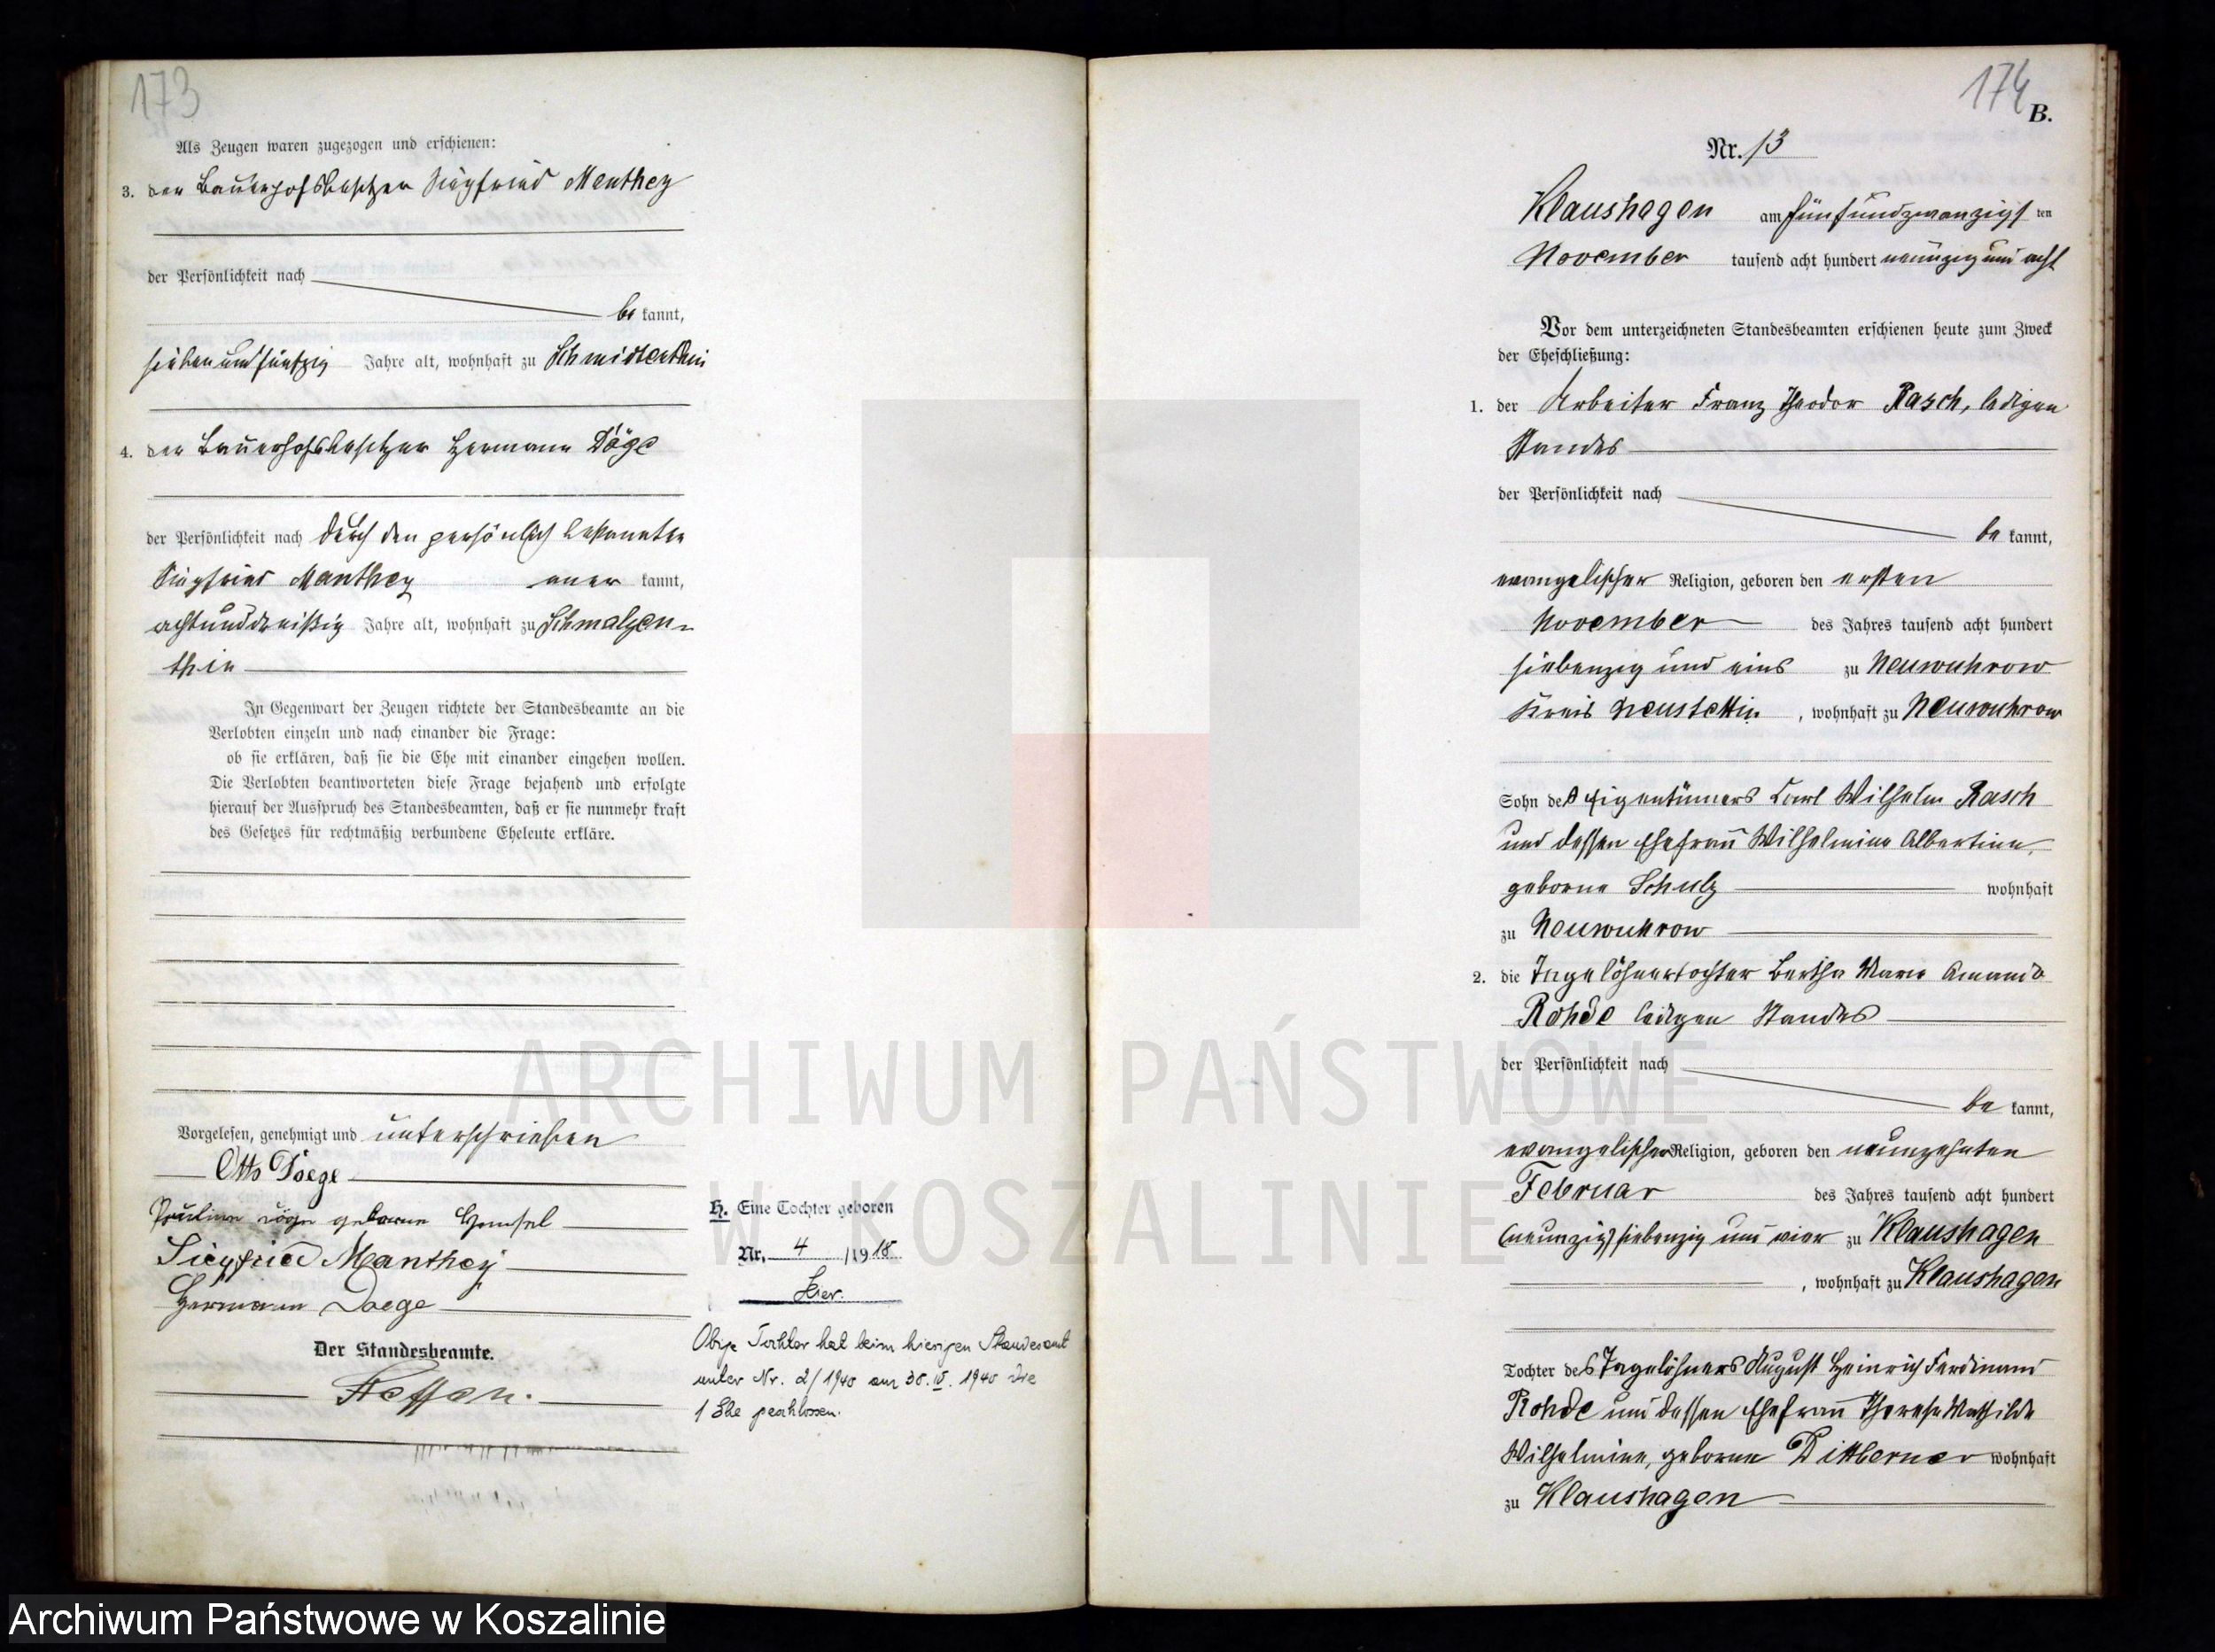 173
Als Zeugen waren zugezogen und erschienen:
3. der Bauerhofsbesitzer Siegfried Manthey
der Persönlichkeit nach
be kannt,
siebenundfünfzig Jahre alt, wohnhaft zu Schmidtenthin
4. der Bauerhofsbesitzer Hermann Döge
der Persönlichkeit nach durch den persönlich bekannten
Siegfried Manthey aner kannt,
achtunddreißig Jahre alt, wohnhaft zu Schmalzen-
thin
In Gegenwart der Zeugen richtete der Standesbeamte an die
Verlobten einzeln und nach einander die Frage:
ob sie erklären, daß sie die Ehe mit einander eingehen wollen.
Die Verlobten beantworteten diese Frage bejahend und erfolgte
hierauf der Ausspruch des Standesbeamten, daß er sie nunmehr kraft
des Gesetzes für rechtmäßig verbundene Eheleute erkläre.
Vorgelesen, genehmigt und unterschrieben
Otto Doege
Pauline Döge geborne Hensel
Siegfried Manthey
Hermann Doege
Der Standesbeamte.
Steffen.
H. Eine Tochter geboren
Nr. 4 /1918
Hier.
Obige Tochter hat beim hiesigen Standesamt
unter Nr. 2/1940 am 30. IV. 1940 die
1 Ehe geschlossen.
174
B.
Nr. 13
Klaushagen am fünfundzwanzigs ten
November tausend acht hundert neunzig und acht
Vor dem unterzeichneten Standesbeamten erschienen heute zum Zweck
der Eheschließung:
1. der Arbeiter Franz Theodor Rasch, ledigen
Standes
der Persönlichkeit nach
be kannt,
evangelischer Religion, geboren den ersten
November des Jahres tausend acht hundert
siebenzig und eins zu Neuwuhrow
Kreis Neustettin, wohnhaft zu Neuwuhrow
Sohn des Eigentümers Carl Wilhelm Rasch
und dessen Ehefrau Wilhelmine Albertine,
geborne Schulz wohnhaft
zu Neuwuhrow
2. die Tagelöhnertochter Bertha Marie Amanda
Rohde ledigen Standes
der Persönlichkeit nach
be kannt,
evangelischer Religion, geboren den neunzehnten
Februar des Jahres tausend acht hundert
(neunzig) siebenzig und vier zu Klaushagen
, wohnhaft zu Klaushagen
Tochter des Tagelöhners August Heinrich Ferdinand
Rohde und dessen Ehefrau Therese Mathilde
Wilhelmine, geborne Dittberner wohnhaft
zu Klaushagen
ARCHIWUM PAŃSTWOWE
W KOSZALINIE
Archiwum Państwowe w Koszalinie